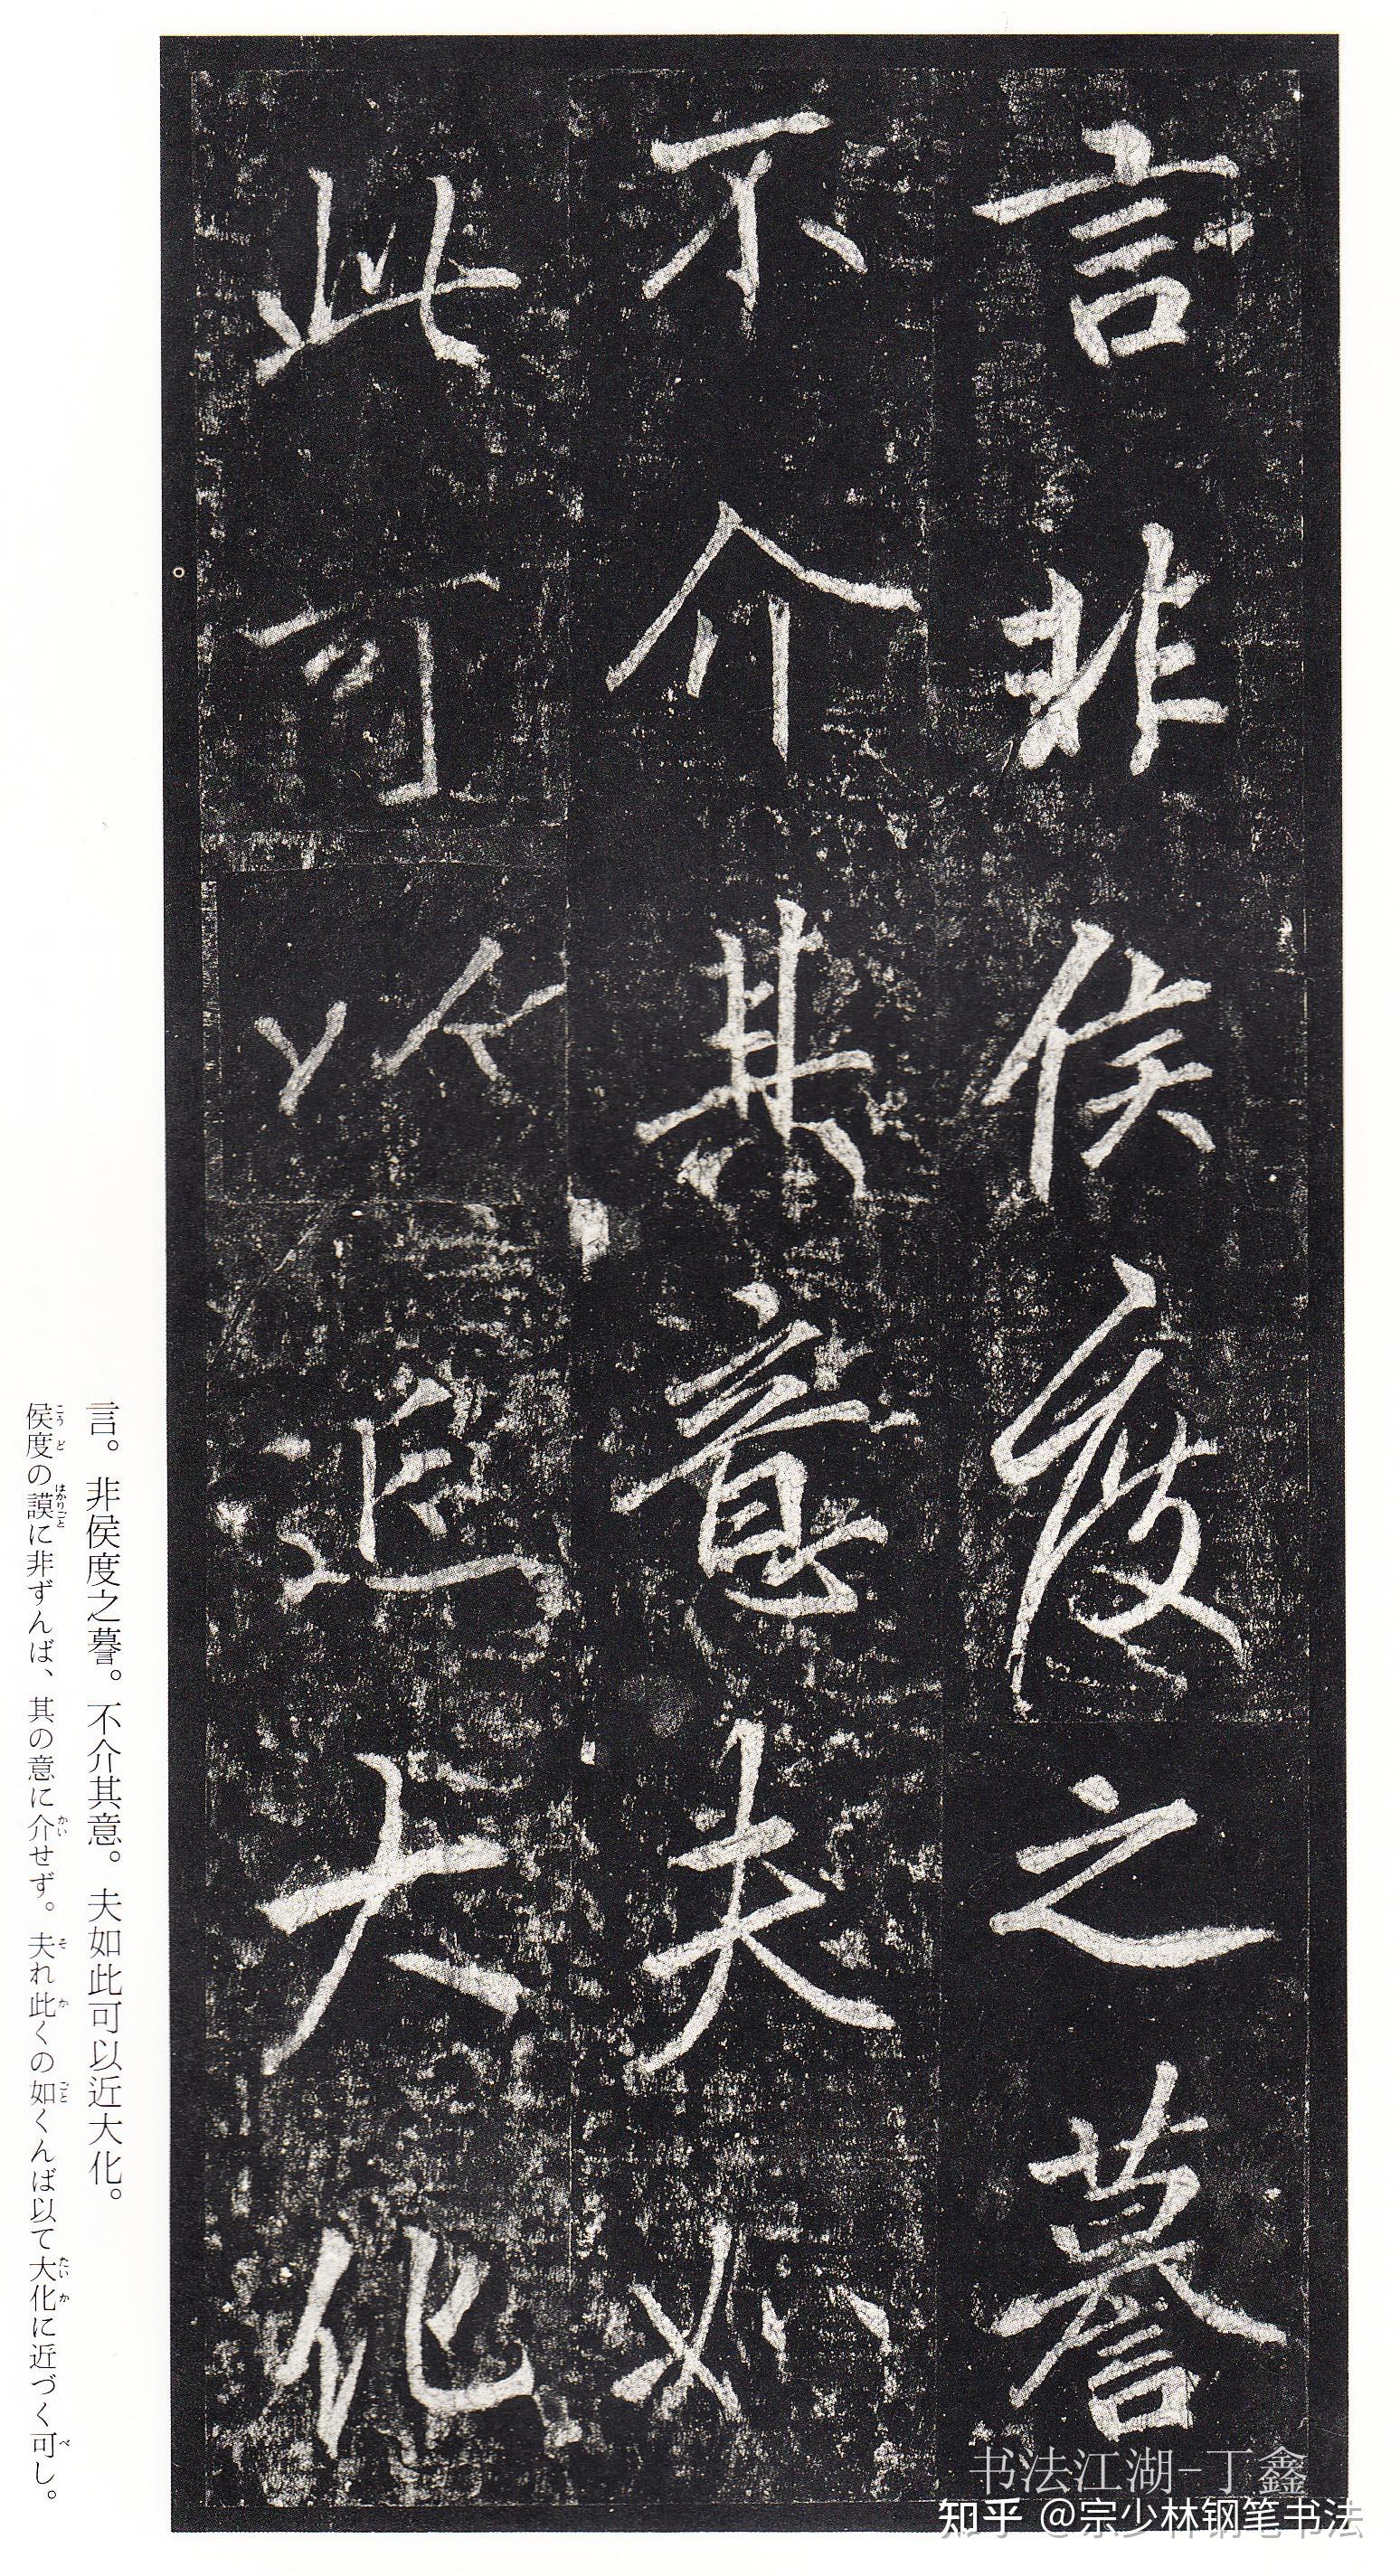 言非侯度之謩
不介其意夫如
此可以近大化
言。非侯度之謩。不介其意。夫如此可以近大化。
侯度の謨に非ずんば、其の意に介せず。夫れ此くの如くんば以て大化に近づく可し。
こうど
はかりごと
かい
そ
か
ごと
たいか
べ
书法江湖-丁鑫
知乎 @宗少林钢笔书法